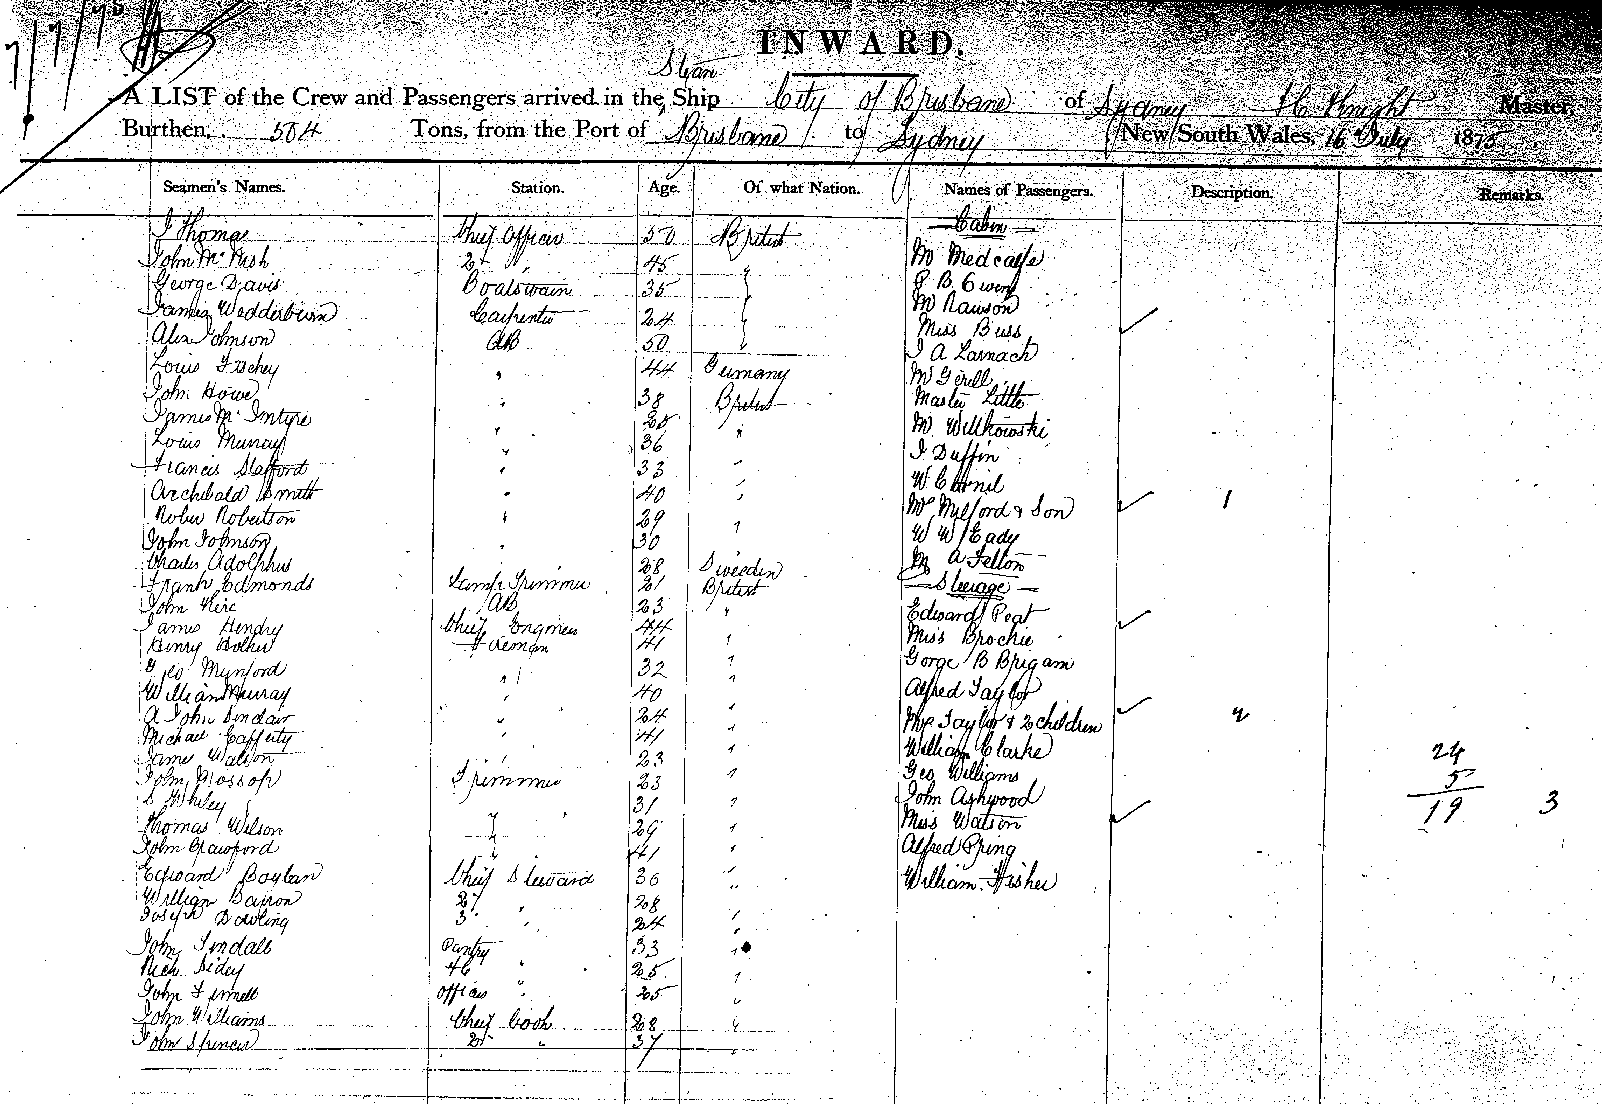 17/7/75
INWARD.
Steam
A LIST of the Crew and Passengers arrived in the Ship City of Brisbane of Sydney Knight Master,
Burthen, 504 Tons, from the Port of Brisbane to Sydney New South Wales, 16 July 1875
Seamen's Names. Station. Age. Of what Nation. Names of Passengers. Description. Remarks.
Cabin
J Thomas Chief Officer 50 British
John McNish 2d " 45 " Mr Medcalfe
George Davis Boatswain 35 " G B Owen
James Wedderburn Carpenter 24 " Mr Rawson
Alex Johnson AB 50 " Miss Buss
J A Larnach
Louis " 44 Germany Mr
John Howe " 38 British Master Little
James McIntyre " 25 " Mr Willkowski
Louis Murray " 36 "
Francis Stafford " 33 " J Duffin
Archibald Smith " 40 " W C
Rober Robertson " 29 " Mrs Milford & Son 1
John Johnson " 30 W W Eady
Charles Adolphus 28 Sweeden A Fellon
Frank Edmonds Lamp Trimmer 21 British Steerage
John AB 23 " Edward Peat
James Hendry Chief Engineer 44 Miss Brochie
Henry Fireman 41 "
Geo Mynford " 32 " Gorge B Brigam
William Murray " 40 " Alfred Taylor
A John Sinclair " 24 " Mrs Taylor & 2 children 2
Michael Cafferty " 41 " William Clarke
James Watson 23 24
John Mossop Trimmer 23 " Geo Williams 5
S Whiley 31 " John Ashwood 19 3
Thomas Wilson " 29 " Miss Watson
John Crawford " 41 " Alfred Pring
Edward Boylan Chief Steward 36 " William Fisher
William Barron 2d " 28 "
Joseph Dowling 3 " 24 "
John Tindall Pantry 33 "
Rich Sidey " 25 "
John Officers " 25 "
John Williams Chief Cook 28 "
John Spencer 2d " 37